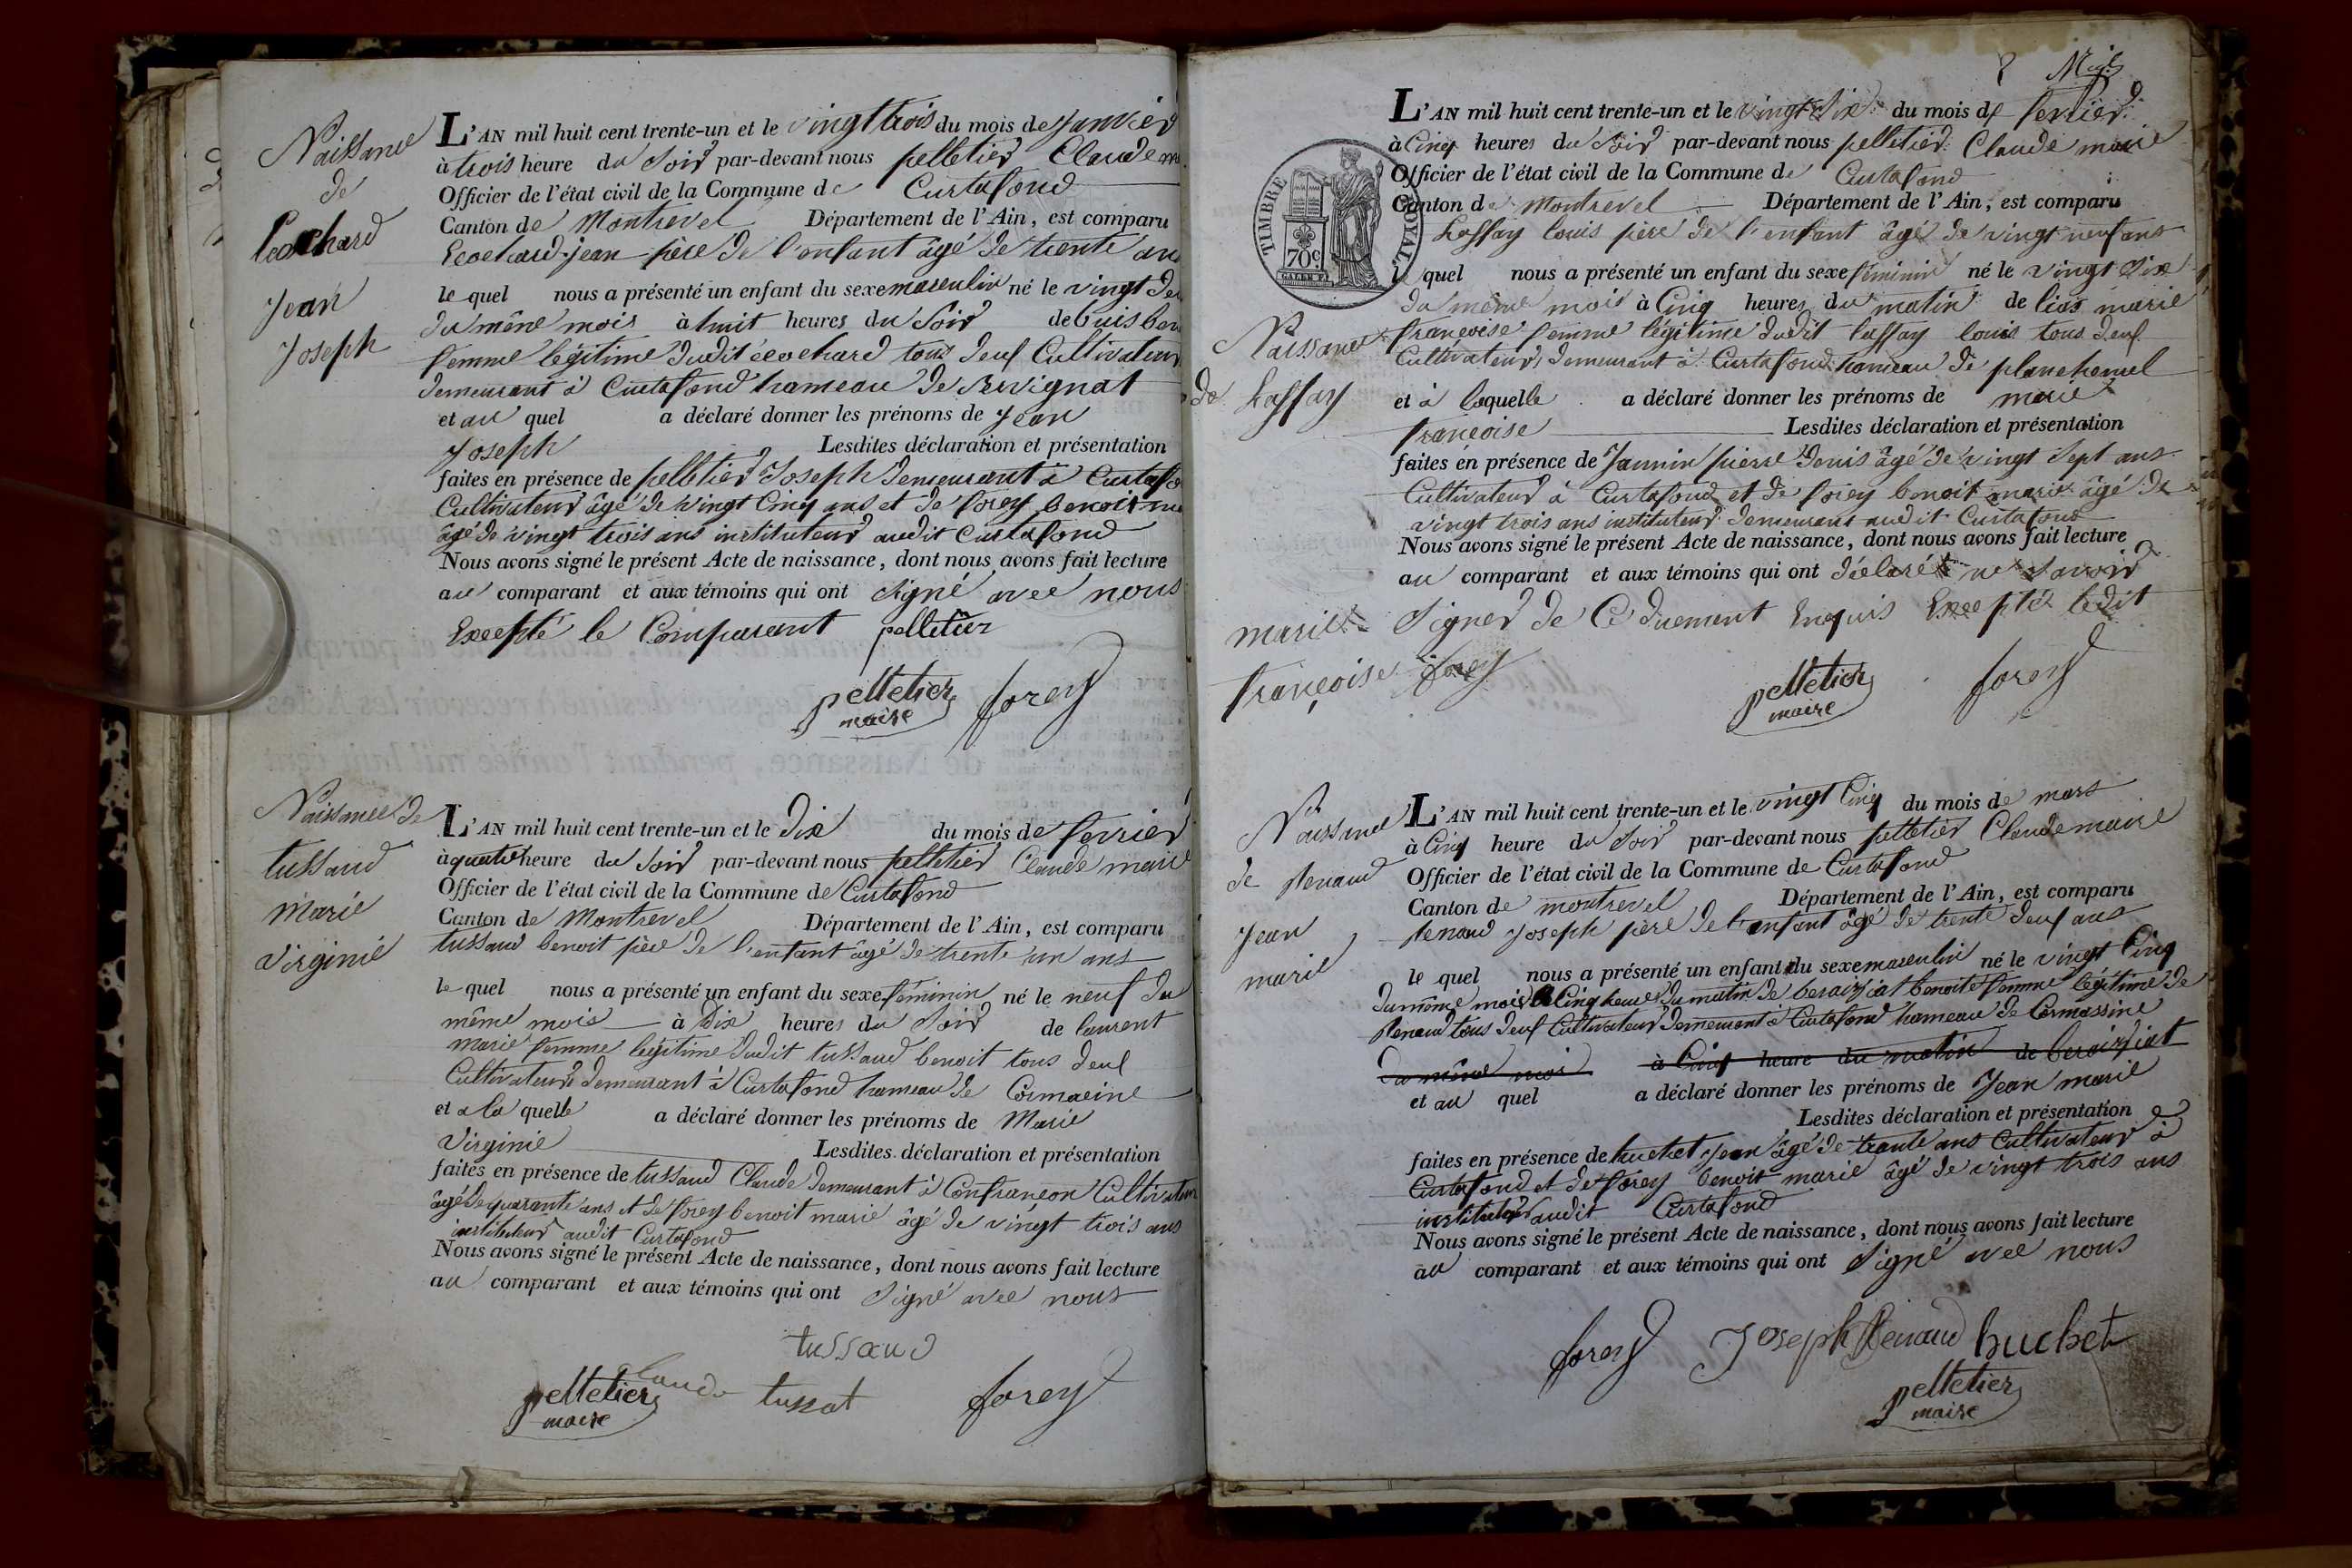 Naissance
de
Ecochard
Jean
Joseph
L'AN mil huit cent trente-un et le vingt trois du mois de janvier
à trois heure du Soir par-devant nous pelletier Claude m
Officier de l'état civil de la Commune de Curtafond
Canton de Montrevel Département de l'Ain, est comparu
Ecochard jean père de l'enfant âgé de trente an
le quel nous a présenté un enfant du sexe masculin né le vingt de
du même mois à huit heures du Soir de buis ben
femme légitime dudit écochard tous deux Cultivateurs
demeurant à Curtafond hameau de Servignat
et au quel a déclaré donner les prénoms de Jean
Joseph Lesdites déclaration et présentation
faites en présence de pelletier Joseph demeurant à Curtafo
Cultivateur âgé de vingt Cinq ans et de forey benoit m
âgé de vingt trois ans instituteur audit Curtafond
Nous avons signé le présent Acte de naissance, dont nous avons fait lecture
au comparant et aux témoins qui ont Signé avec nous
Excepté le Comparant pelletier
pelletier
maire
forey
Naissance de
tussaud
marie
virginie
L'AN mil huit cent trente-un et le Dix du mois de fevrier
à quatre heure du Soir par-devant nous pelletier Claude marie
Officier de l'état civil de la Commune de Curtafond
Canton de Montrevel Département de l'Ain, est comparu
tussaud benoit père de l'enfant âgé de trente un ans
le quel nous a présenté un enfant du sexe féminin né le neuf du
même mois à Dix heures du Soir de laurent
marie femme légitime dudit tussaud benoit tous deux
Cultivateurs demeurant à Curtafond hameau de Cormacine
et a la quelle a déclaré donner les prénoms de Marie
Virginie Lesdites déclaration et présentation
faites en présence de tussaud Claude demeurant à Confrançon Cultivateur
âgé de quarante ans et de forey benoit marie âgé de vingt trois ans
instituteur audit Curtafond
Nous avons signé le présent Acte de naissance, dont nous avons fait lecture
au comparant et aux témoins qui ont Signé avec nous
tussaud
Claude tussat
pelletier
maire
forey
TIMBRE ROYAL
70c
Naissance
de Lassay
marie
françoise
L'AN mil huit cent trente-un et le vingt Six du mois de fevrier
à Cinq heures du Soir par-devant nous pelletier Claude marie
Officier de l'état civil de la Commune de Curtafond
Canton de Montrevel Département de l'Ain, est comparu
Lassay louis père de l'enfant âgé de vingt neuf ans
le quel nous a présenté un enfant du sexe féminin né le vingt Six
du même mois à Cinq heures du matin de lias marie
françoise femme légitime dudit lassay louis tous deux
Cultivateurs demeurant à Curtafond hameau de planchemel
et à laquelle a déclaré donner les prénoms de marie
françoise Lesdites déclaration et présentation
faites en présence de Jannin pierre denis âgé de vingt Sept ans
Cultivateur à Curtafond et de forey benoit marie âgé de
vingt trois ans instituteur demeurant audit Curtafond
Nous avons signé le présent Acte de naissance, dont nous avons fait lecture
au comparant et aux témoins qui ont déclaré ne Savoir
Signer de Ce duement Enquis Excepté ledit
forey
pelletier
maire
forey
Naissance
de Renaud
Jean
marie
L'AN mil huit cent trente-un et le vingt Cinq du mois de mars
à Cinq heure du Soir par-devant nous pelletier Claude marie
Officier de l'état civil de la Commune de Curtafond
Canton de montrevel Département de l'Ain, est comparu
Renaud Joseph père de l'enfant âgé de trente deux ans
le quel nous a présenté un enfant du sexe masculin né le vingt Cinq
du même mois à Cinq heures du matin de beraisiat benoite femme légitime de
Renaud tous deux Cultivateurs demeurant à Curtafond hameau de Cormassine
du même moi à Cinq heure du matin de beraisiat
et au quel a déclaré donner les prénoms de Jean marie
Lesdites déclaration et présentation
faites en présence de huchet Jean âgé de trente ans Cultivateur à
Curtafond et de forey benoit marie âgé de vingt trois ans
instituteur audit Curtafond
Nous avons signé le présent Acte de naissance, dont nous avons fait lecture
au comparant et aux témoins qui ont Signé avec nous
forey Joseph Renaud huchet
pelletier
maire